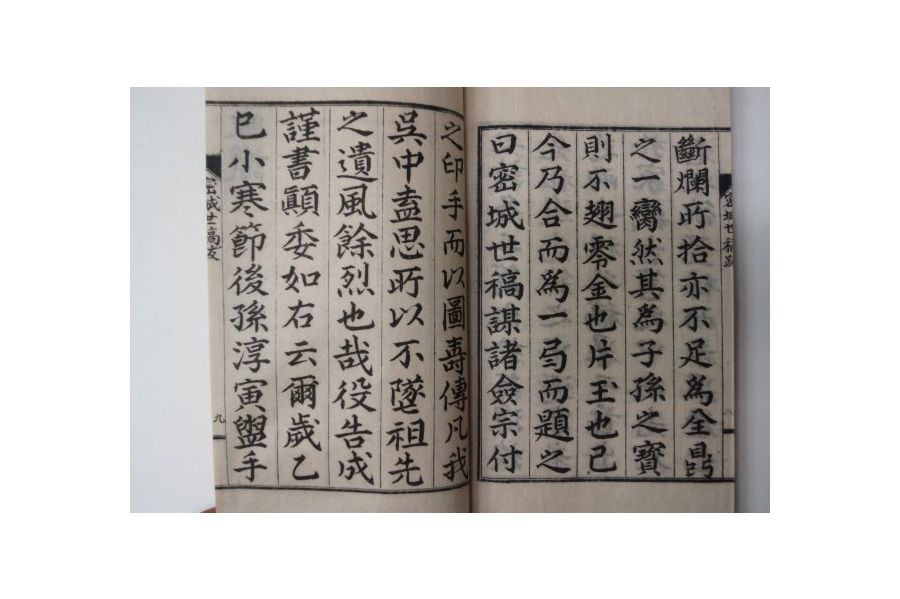 密城世稿跋
斷爛所拾亦不足爲全鼎
之一臠然其爲子孫之寶
則不翅零金也片玉也已
今乃合而爲一弓而題之
曰密城世稿謀諸僉宗付
之印手而以圖壽傳凡我
吳中盍思所以不墜祖先
之遺風餘烈也哉役告成
謹書顚委如右云爾歲乙
巳小寒節後孫淳寅盥手
密城世稿跋
九